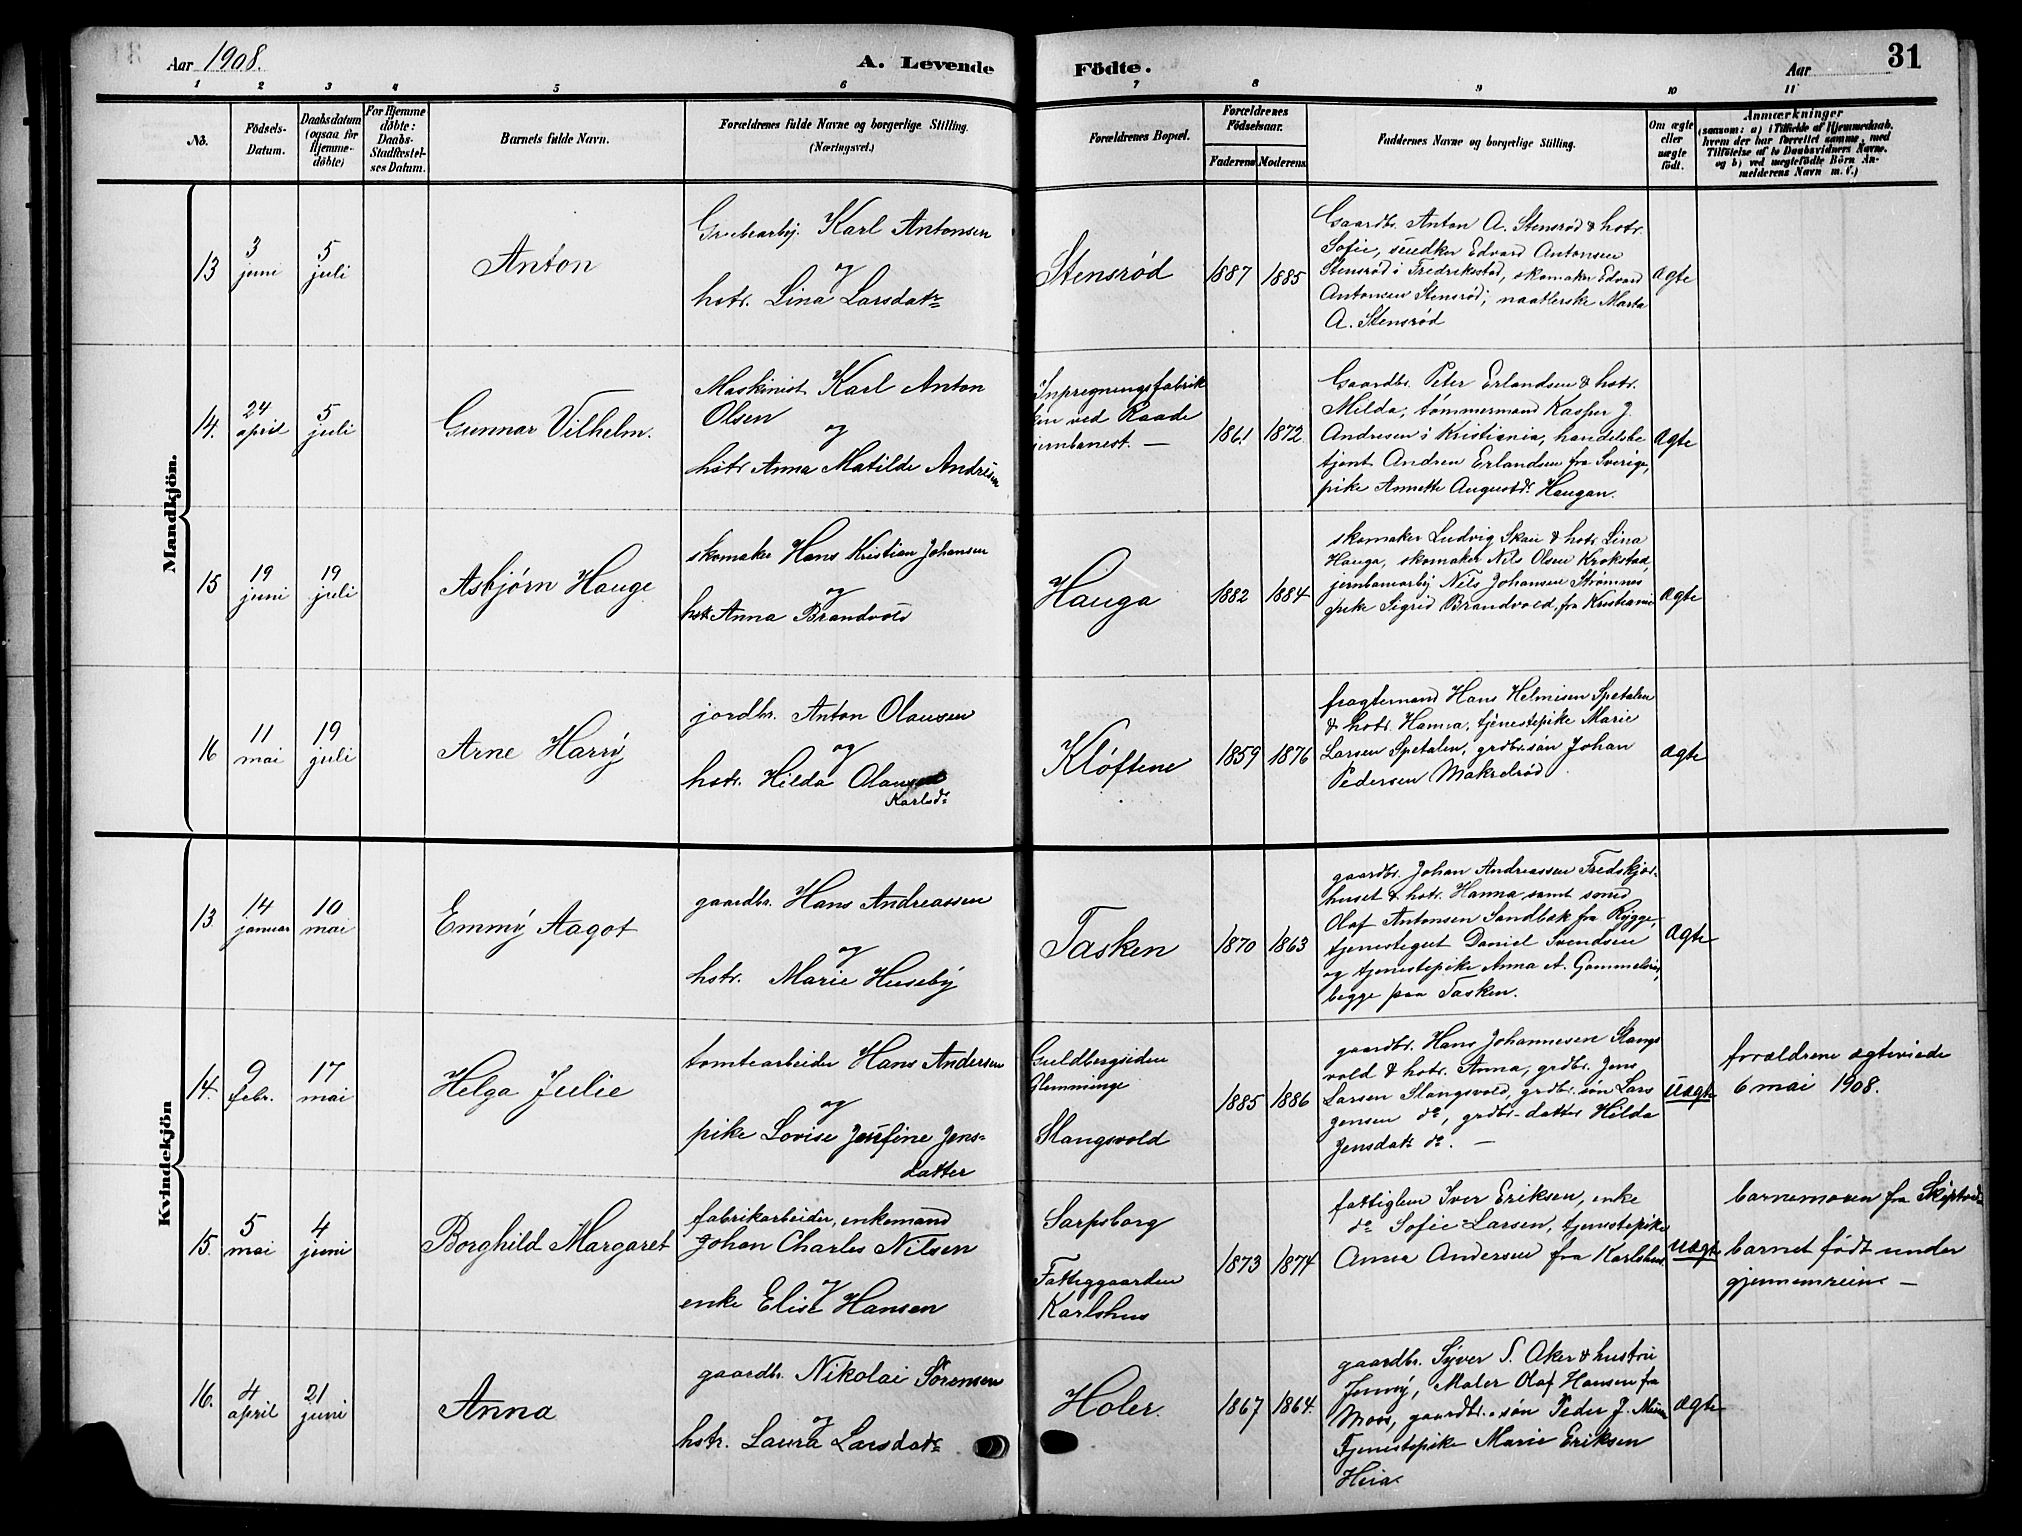 Aar 1908.
A. Levende
Födte.
Aar
31
1 2 3 4 5 6 7 8 9 10 11
No.
Födsels-
Datum.
Daabsdatum
(ogsaa for
Hjemme-
döbte)
For Hjemme
döbte:
Daabs-
Stadfæstel-
ses Datum.
Barnets fulde Navn.
Forældrenes fulde Navne og borgerlige Stilling.
(Næringsvei.)
Forældrenes Bopæl.
Forældrenes
Födselsaar.
Faderens
Moderens
Faddernes Navne og borgerlige Stilling.
Om ægte
eller
uægte
födt.
Anmærkninger
(saasom: a) i Tilfælde af Hjemmedaab.
hvem der har forrettet samme, med
Tilföielse af to Daabsvidners Navne.
og b) ved uægtefödte Börn An-
melderens Navn m. v.)
Mandkjön.
13
3
juni
5
juli
Anton
Karl Antonsen
og
hstr. Lina Larsdatr
Stensrød
1887
1885
Gaardbr. Anton A. Stensrød & hstr.
Sofie, Edvard Antonsen
Stensrød i Fredriksstad, skomaker Edvard
Antonsen Stensrød, naatlerske Marta
A. Stensrød
ægte
14.
24
april
5
juli
Gunnar Vilhelm.
Maskinist Karl Anton
Olsen
og
hstr Anna Matilde Andresen
Inpregningsfabrik
ken ved Raade
jernbanest. —
1861
1872
Gaardbr. Peter Erlandsen & hstr.
Milda, tømmermand Kasper J.
Andresen i Kristiania, handelsbe
tjent Andren Erlandsen fra Sverige,
pike Annette Augustdr. Haugan.
ægte
15
19
juni
19
juli
Asbjørn Hauge
skomaker Hans Kristian Johansen
og
hstr Anna Brandvold
Hauga
1882
1884
skomaker Ludvig Skau & hstr Lina
Hauga, skomaker Nils Olsen Krokstad,
jernbanearbej Nils Johansen Strømnes
pike Sigrid Brandvold, fra Kristiania
ægte
16
11
mai
19
juli
Arne Harry
jordbr. Anton Olausen
og
hstr. Hilda Olausen
Karlsdr
Kløftene
1859
1876
fragtemand Hans Helmisen Spetalen
& hstr Hanna, tjenestepike Marie
Larsen Spetalen, grdbr.søn Johan
Pedersen Makrelrød
ægte
Kvindekjön
13.
14
januar
10
mai
Emmy Aagot
gaardbr. Hans Andreassen
og
hstr. Marie Huseby
Tasken
1870
1863
gaardbr. Johan Andreassen Fredskjær
huset & hstr. Hanna samt smed
Olaf Antonsen Sandbæk fra Rygge,
tjenestegut Daniel Svendsen
og tjenestepike Anna A. Gammelsrød,
begge paa Tasken.
ægte
14.
9
febr.
17
mai
Helga Julie
tomtearbeider Hans Andersen
og
pike Lovise Josefine Jens-
datter
Guldbergsiden
Glemminge
Slangsvold
1885
1886
gaardbr. Hans Johannesen Slangs
vold & hstr. Anna, grdbr. Jens
Larsen Slangsvold, grdbr.søn Lars
Jensen do, grdbr-datter Hilda
Jensdatr do. —
uægte
forældrene ægteviede
6 mai 1908.
15.
5
mai
4
juni
Borghild Margaret
fabrikarbeider, enkemand
Johan Charles Nilsen
og
enke Elise Hansen
Sarpsborg
Fattiggaarden
Karlshus
1873
1874
fattiglem Iver Eriksen, enke
do Sofie Larsen, tjenestepike
Anna Andersen fra Karlshus
uægte
barnemoren fra Skiptvedt
barnet født under
gjennemreise —
16.
4
april
21
juni
Anna
gaardbr. Nikolai Sørensen
og
hstr. Laura Larsdatr
Holer.
1867
1864.
gaardbr. Syver S. Aker & hustru
Jenny, Maler Olaf Hansen fra
Moss, gaardbr.søn Peder J.
Tjenestepike Marie Eriksen
Heia
ægte